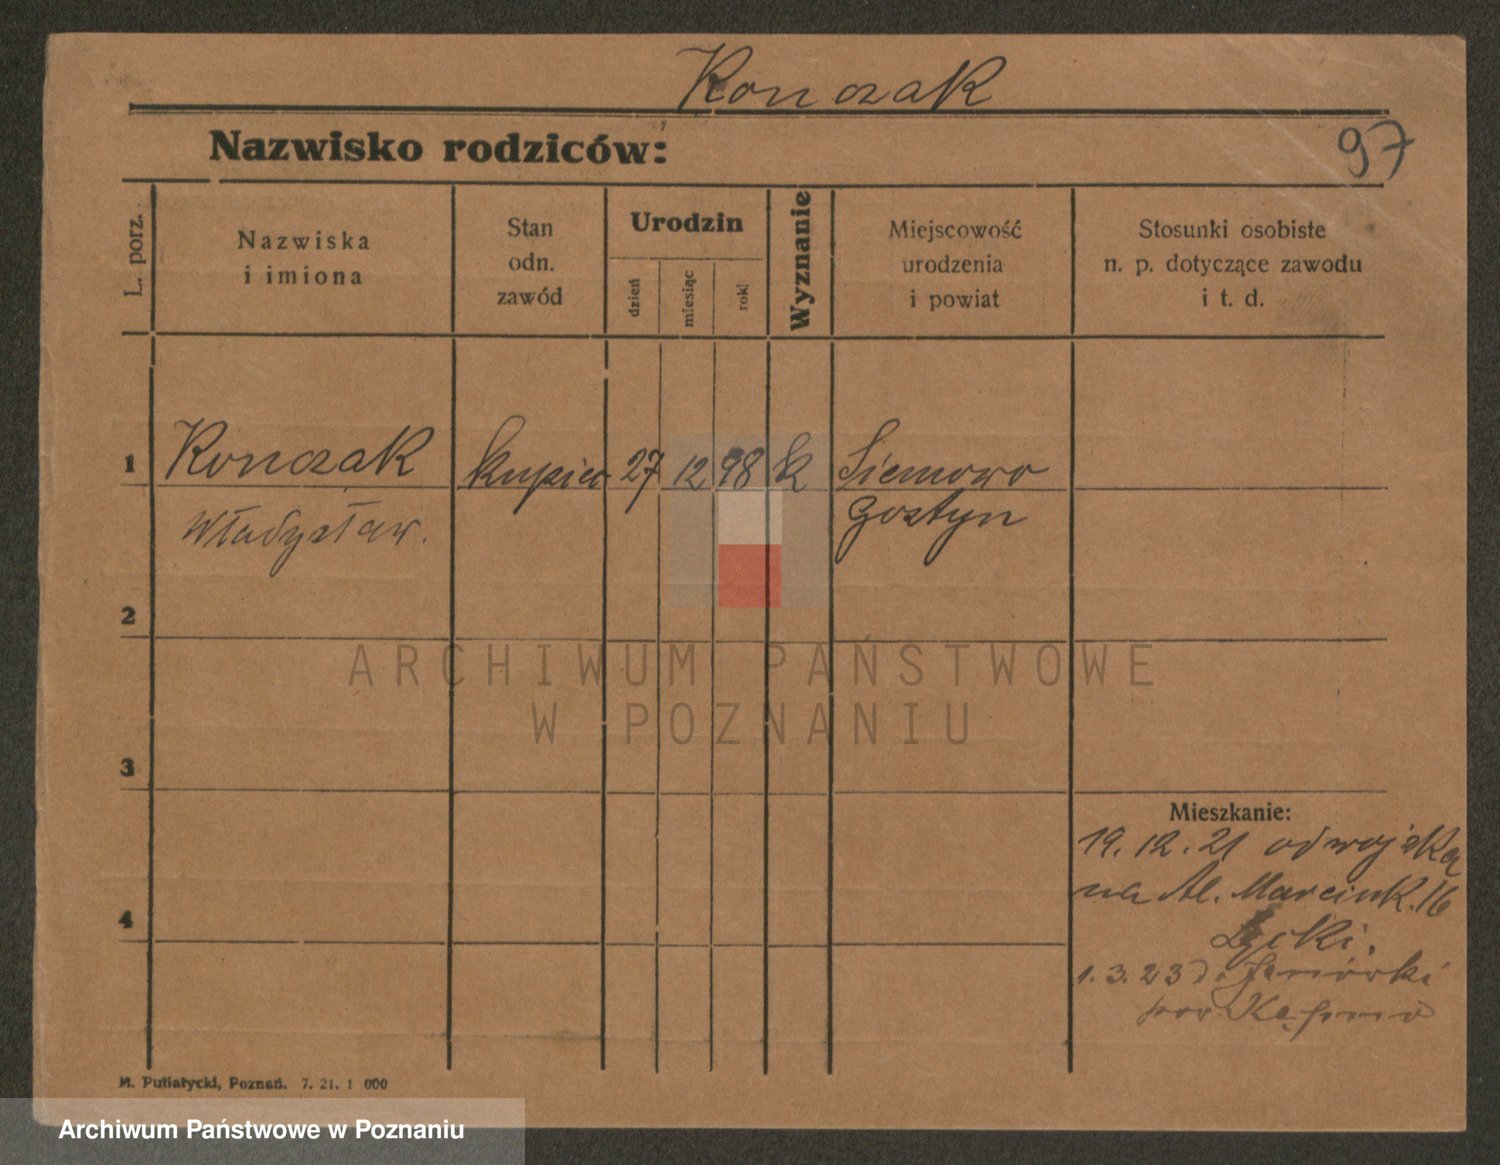 Konczak
Nazwisko rodziców:
97
L. porz.
Nazwiska
i imiona
Stan
odn.
zawód
Urodzin
dzień
miesiąc
rok
Wyznanie
Miejscowość
urodzenia
i powiat
Stosunki osobiste
n. p. dotyczące zawodu
i t. d.
1
Konczak kupiec 27 12 98 k Siemowo
Władysław. Gostyn
2
ARCHIWUM PAŃSTWOWE
W POZNANIU
3
Mieszkanie:
19.12.21 od wojska
na Al. Marcink. 16
4
1.3.23 do
M. Putiatycki, Poznań. 7. 21. 1 000
Archiwum Państwowe w Poznaniu